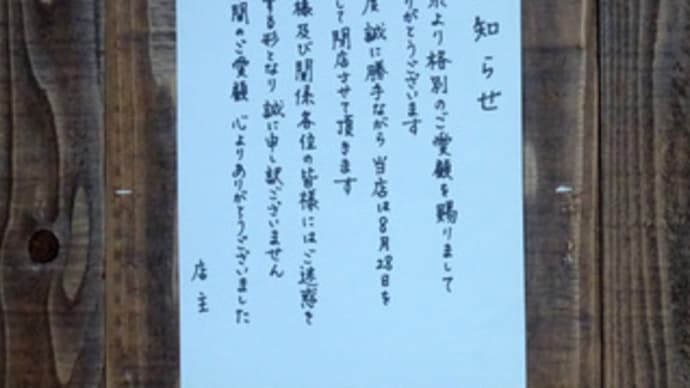 知らせ
より格別のご愛顧を賜りまして
りがとうございます
度 誠に勝手ながら 当店は8月28日を
して閉店させて頂きます
様及び関係各位の皆様にはご迷惑を
する形となり 誠に申し訳ございません
間のご愛顧 心よりありがとうございました
店主